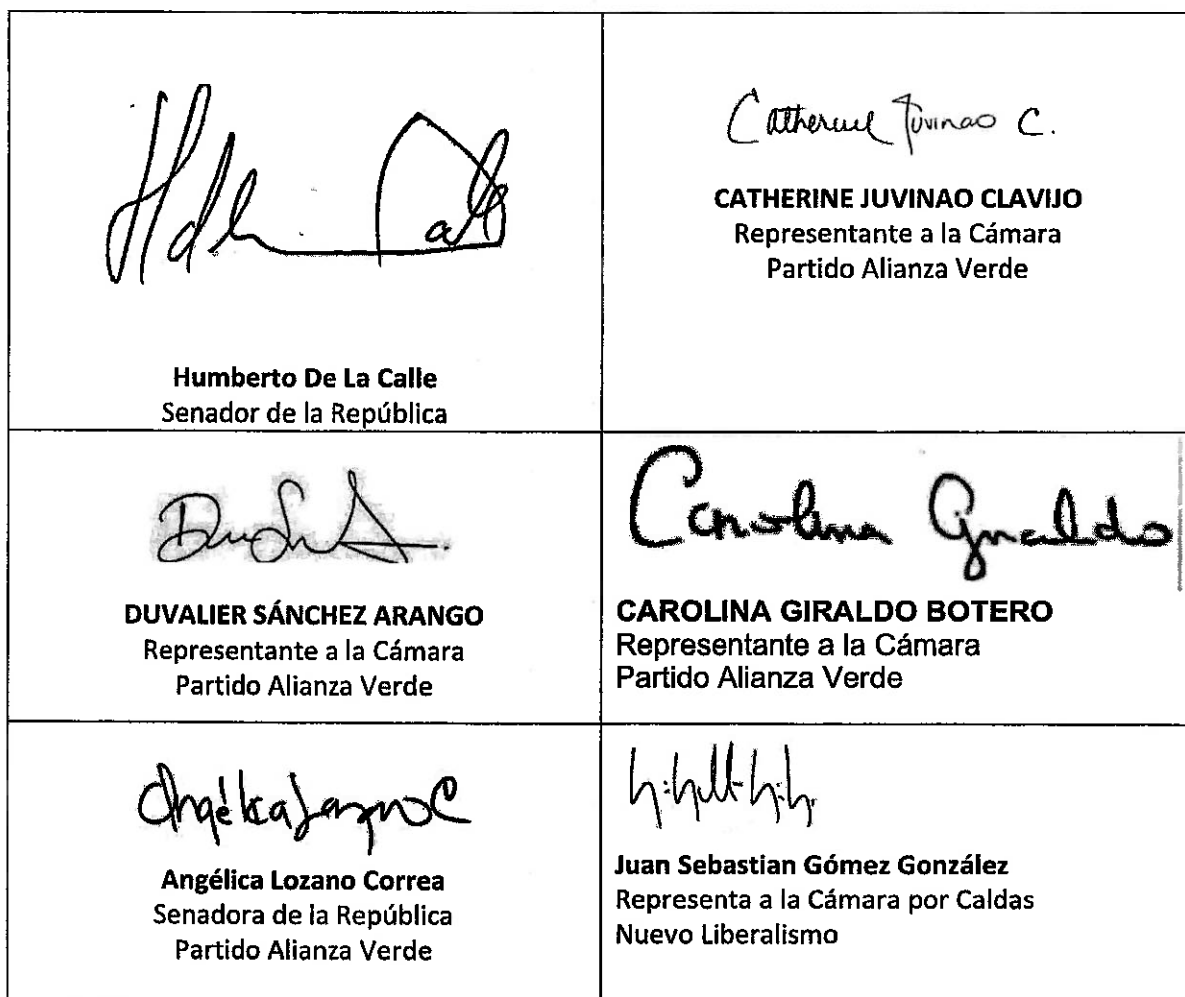 Humberto De La Calle
Senador de la República
Catherine Juvinao C.
CATHERINE JUVINAO CLAVIJO
Representante a la Cámara
Partido Alianza Verde
DUVALIER SÁNCHEZ ARANGO
Representante a la Cámara
Partido Alianza Verde
Carolina Giraldo
CAROLINA GIRALDO BOTERO
Representante a la Cámara
Partido Alianza Verde
Angélica Lozano C
Angélica Lozano Correa
Senadora de la República
Partido Alianza Verde
Juan Sebastian Gómez González
Representa a la Cámara por Caldas
Nuevo Liberalismo